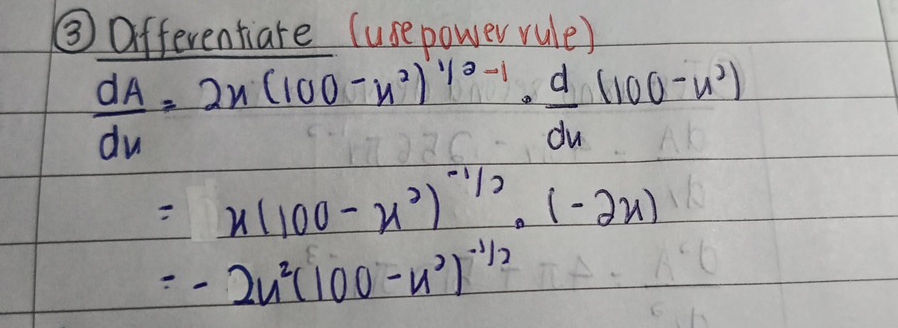 ③ Differentiate (use power rule)
dA/du = 2u(100 - u²)^1/2-1 . d/du (100 - u²)
= u(100 - u²)^-1/2 . (-2u)
= - 2u²(100 - u²)^-1/2